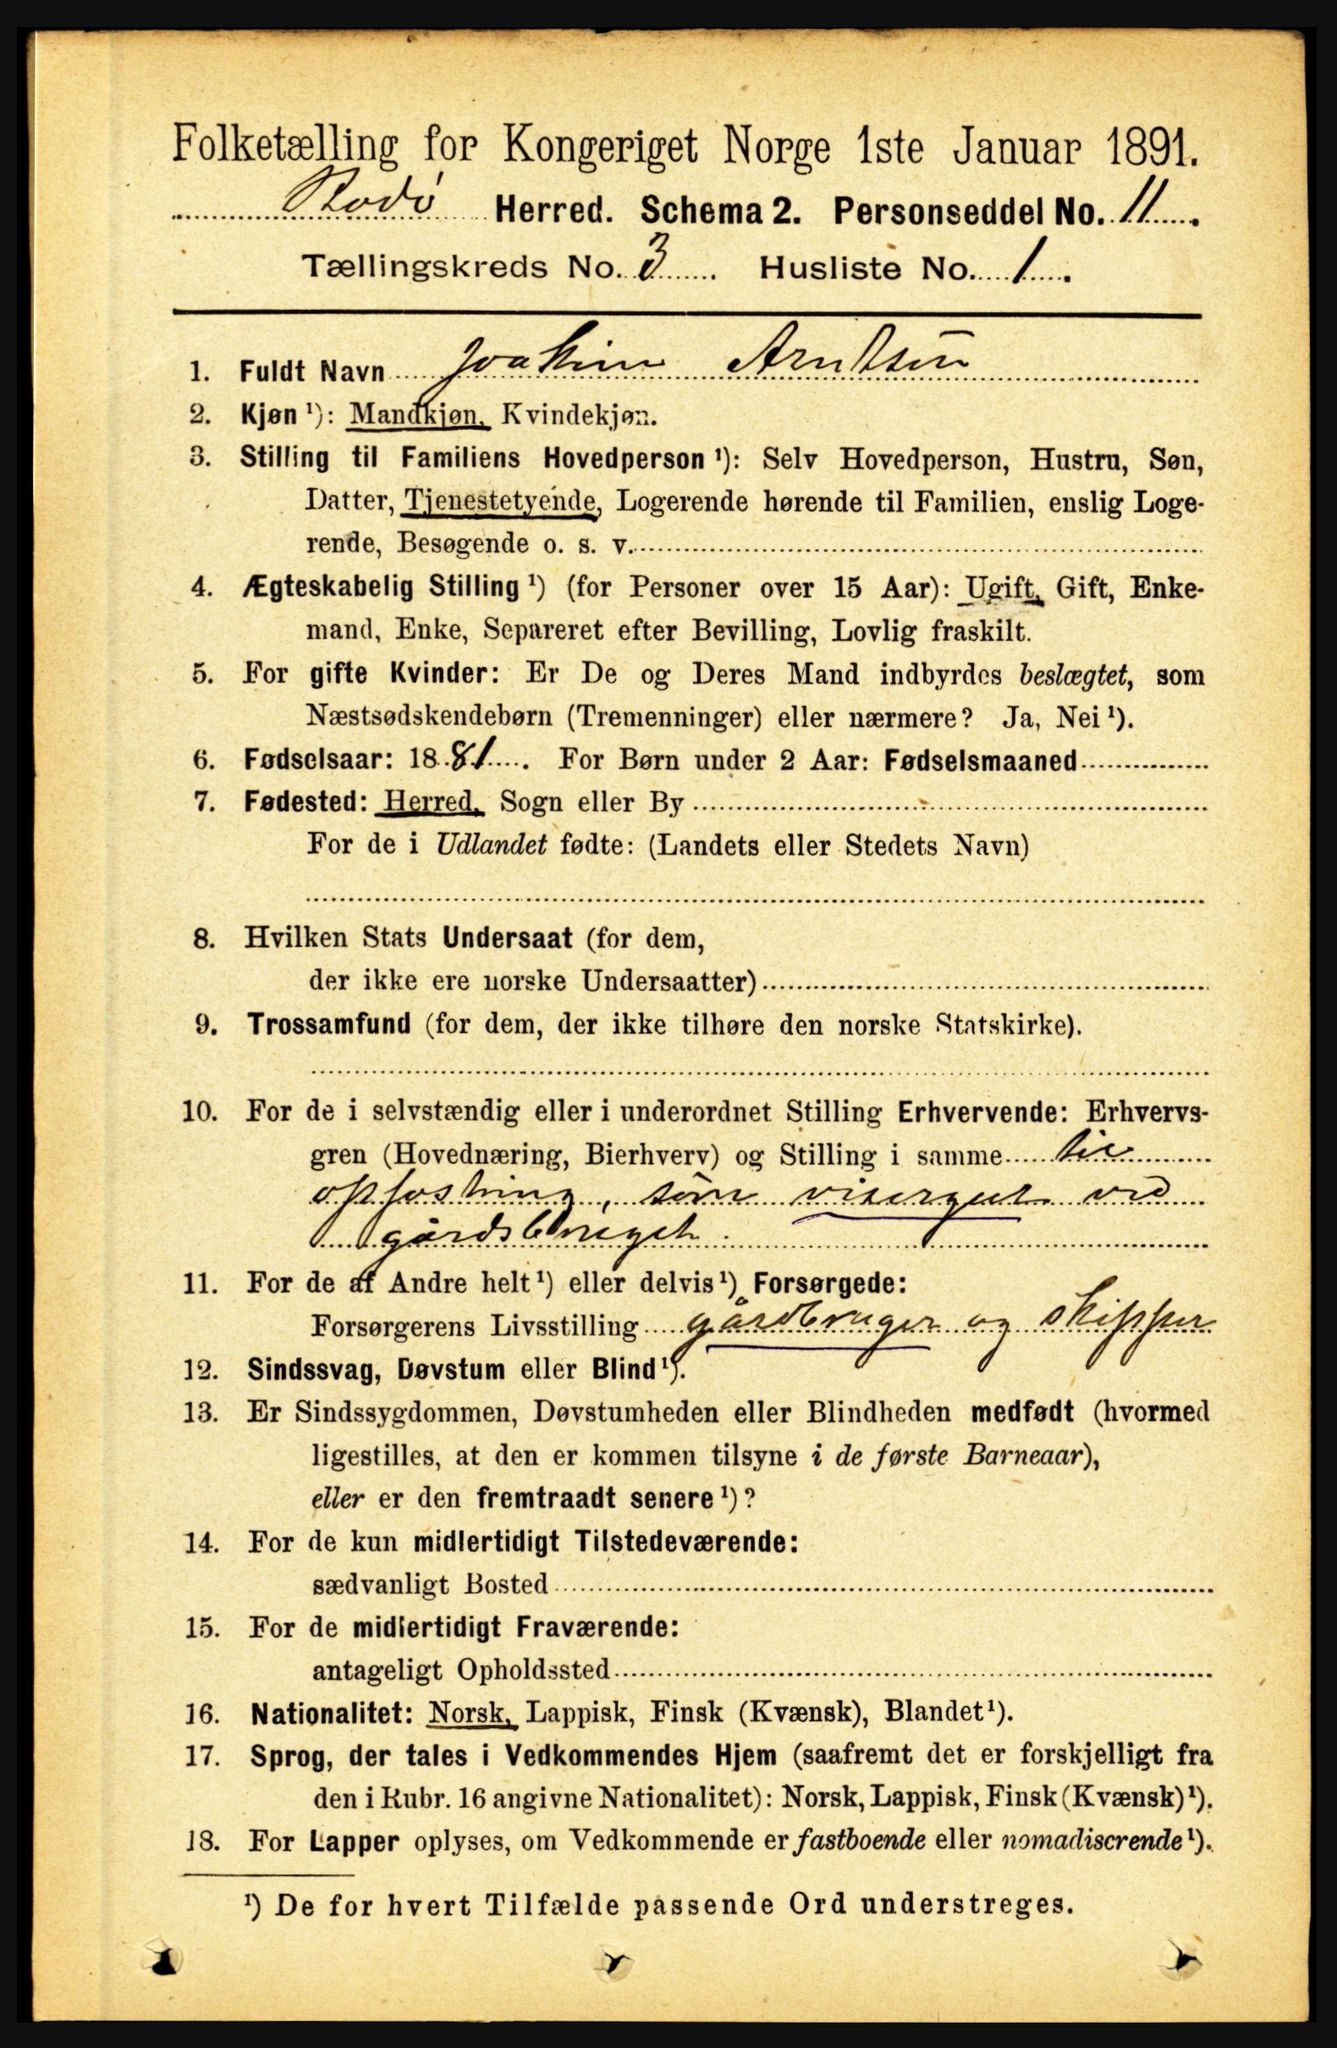 Folketælling for Kongeriget Norge 1ste Januar 1891.
Rodø Herred. Schema 2. Personseddel No. 11.
Tællingskreds No. 3. Husliste No. 1.
1. Fuldt Navn Joakim Arntsen
2. Kjøn ¹): Mandkjøn, Kvindekjøn.
3. Stilling til Familiens Hovedperson ¹): Selv Hovedperson, Hustru, Søn,
Datter, Tjenestetyende, Logerende hørende til Familien, enslig Loge-
rende, Besøgende o. s. v.
4. Ægteskabelig Stilling ¹) (for Personer over 15 Aar): Ugift, Gift, Enke-
mand, Enke, Separeret efter Bevilling, Lovlig fraskilt.
5. For gifte Kvinder: Er De og Deres Mand indbyrdes beslægtet, som
Næstsødskendebørn (Tremenninger) eller nærmere? Ja, Nei ¹).
6. Fødselsaar: 1881. For Børn under 2 Aar: Fødselsmaaned
7. Fødested: Herred, Sogn eller By
For de i Udlandet fødte: (Landets eller Stedets Navn)
8. Hvilken Stats Undersaat (for dem,
der ikke ere norske Undersaatter)
9. Trossamfund (for dem, der ikke tilhøre den norske Statskirke).
10. For de i selvstændig eller i underordnet Stilling Erhvervende: Erhvervs-
gren (Hovednæring, Bierhverv) og Stilling i samme til
opfostring, som visergut ved
gårdsbruget.
11. For de af Andre helt ¹) eller delvis ¹) Forsørgede:
Forsørgerens Livsstilling gårdbruger og skipper
12. Sindssvag, Døvstum eller Blind ¹).
13. Er Sindssygdommen, Døvstumheden eller Blindheden medfødt (hvormed
ligestilles, at den er kommen tilsyne i de første Barneaar),
eller er den fremtraadt senere ¹)?
14. For de kun midlertidigt Tilstedeværende:
sædvanligt Bosted
15. For de midlertidigt Fraværende:
antageligt Opholdssted
16. Nationalitet: Norsk, Lappisk, Finsk (Kvænsk), Blandet ¹).
17. Sprog, der tales i Vedkommendes Hjem (saafremt det er forskjelligt fra
den i Rubr. 16 angivne Nationalitet): Norsk, Lappisk, Finsk (Kvænsk) ¹).
18. For Lapper oplyses, om Vedkommende er fastboende eller nomadiserende ¹).
¹) De for hvert Tilfælde passende Ord understreges.